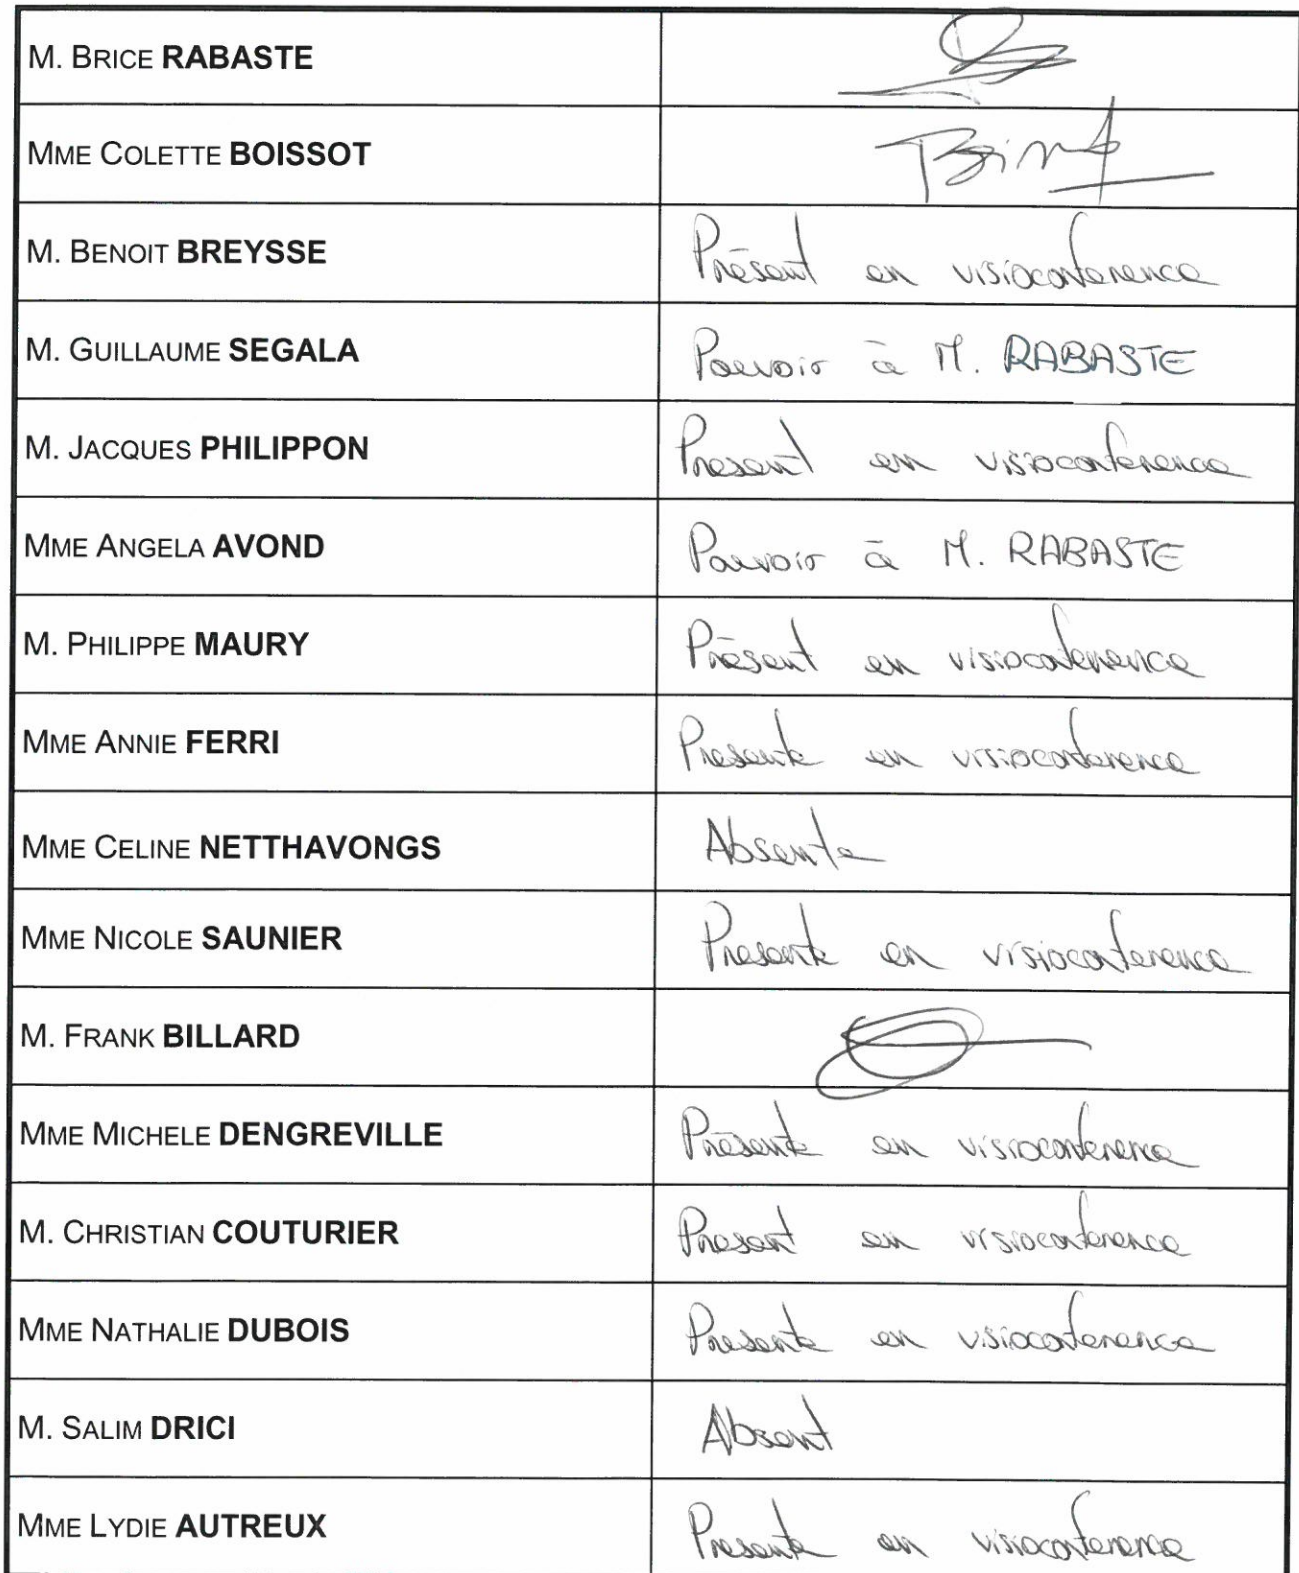 M. BRICE RABASTE
MME COLETTE BOISSOT
M. BENOIT BREYSSE Présent en visioconference
M. GUILLAUME SEGALA Pouvoir à M. RABASTE
M. JACQUES PHILIPPON Present en visioconference
MME ANGELA AVOND Pouvoir à M. RABASTE
M. PHILIPPE MAURY Présent en visioconference
MME ANNIE FERRI Presente en visioconference
MME CELINE NETTHAVONGS Absente
MME NICOLE SAUNIER Presente en visioconference
M. FRANK BILLARD
MME MICHELE DENGREVILLE Présente en visioconference
M. CHRISTIAN COUTURIER Present en visioconference
MME NATHALIE DUBOIS Presente en visioconference
M. SALIM DRICI Absent
MME LYDIE AUTREUX Presente en visioconference